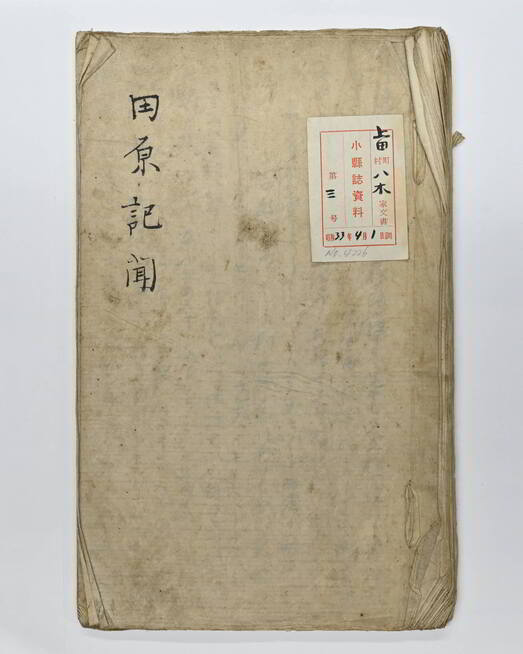 上田町村八木家文書
小縣誌資料
第三号
昭和33年4月1日調
No.4226
田原記聞